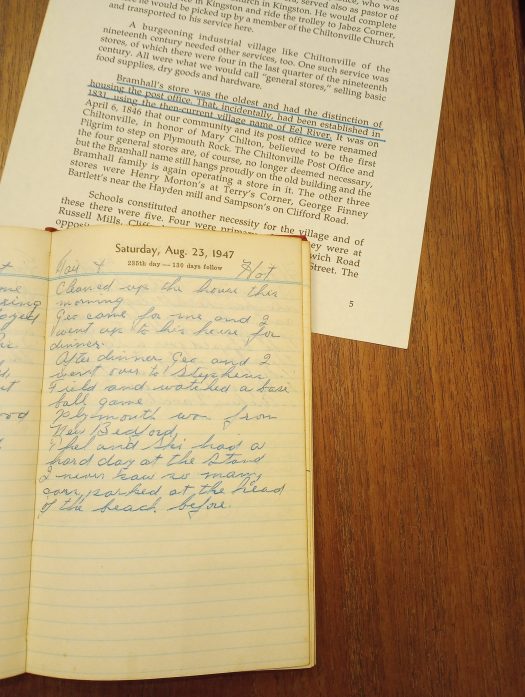 served also as pastor of
church in Kingston. He would complete
in Kingston and ride the trolley to Jabez Corner,
where he would be picked up by a member of the Chiltonville Church
and transported to his service here.
A burgeoning industrial village like Chiltonville of the
nineteenth century needed other services, too. One such service was
stores, of which there were four in the last quarter of the nineteenth
century. All were what we would call "general stores," selling basic
food supplies, dry goods and hardware.
Bramhall's store was the oldest and had the distinction of
housing the post office. That, incidentally, had been established in
1831, using the then-current village name of Eel River. It was on
April 6, 1846 that our community and its post office were renamed
Chiltonville, in honor of Mary Chilton, believed to be the first
Pilgrim to step on Plymouth Rock. The Chiltonville Post Office and
the four general stores are, of course, no longer deemed necessary,
but the Bramhall name still hangs proudly on the old building and the
Bramhall family is again operating a store in it. The other three
stores were Henry Morton's at Terry's Corner, George Finney
Bartlett's near the Hayden mill and Sampson's on Clifford Road.
Schools constituted another necessity for the village and of
these there were five. Four were
Russell Mills,
Street. The
5
Saturday, Aug. 23, 1947
235th day — 130 days follow
Hot
Cleaned up the house this
morning
Geo came for me and I
went up to his house for
dinner.
After dinner Geo and I
went over to Stephens
Field and watched a base
ball game
Plymouth won from
New Bedford,
and Ski had a
hard day at the stand
I never saw so many
cars parked at the head
of the beach before.